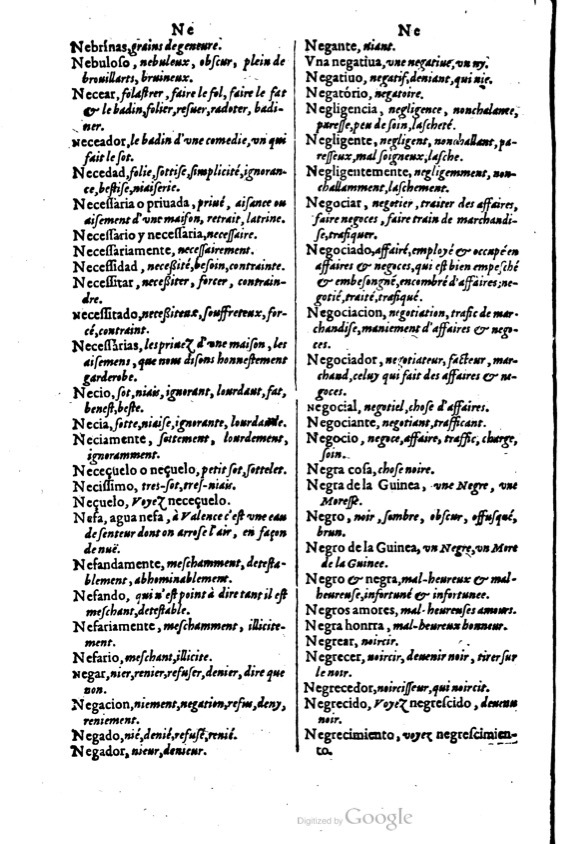 Ne
Nebrinas, grains degeneure.
Nebuloso, nebuleux, obscur, plein de
brouillarts, bruineux.
Necear, folastrer, faire le fol, faire le fat
& le badin, folier, resuer, radoter, badi-
ner.
Neceador, le badin d'une comedie, vn qui
fait le sot.
Necedad, folie, sottise, simplicité, ignoran-
ce, bestise, niaiserie.
Necessaria o priuada, priué, aisance ou
aisement d'vne maison, retrait, latrine.
Necessario y necessaria, necessaire.
Necessariamente, necessairement.
Necessidad, necessité, besoin, contrainte.
Necessitar, necessiter, forcer, contrain-
dre.
Necessitado, necessiteux, souffreteux, for-
cé, contraint.
Necessàrias, les priuez d'vne maison, les
aisemens, que nous disons honnestement
garderobe.
Necio, sot, niais, ignorant, lourdaut, fat,
benest, beste.
Necia, sotte, niaise, ignorante, lourdaude.
Neciamente, sottement, lourdement,
ignoramment.
Neceçuelo o neçuelo, petit sot, sottelet.
Necissimo, tres-sot, tres-niais.
Neçuelo, Voyez neceçuelo.
Nefa, agua nefa, à Valence c'est vne eau
de senteur dont on arrose l'air, en façon
de nuë.
Nefandamente, meschamment, detesta-
blement, abhominablement.
Nefando, qui n'est point à dire tant il est
meschant, detestable.
Nefariamente, meschamment, illicite-
ment.
Nefario, meschant, illicite.
Negar, nier, renier, refuser, denier, dire que
non.
Negacion, niement, negation, refus, deny,
reniement.
Negado, nié, denié, refusé, renié.
Negador, nieur, denieur.
Ne
Negante, niant.
Vna negatiua, vne negatiue, vn ny.
Negatiuo, negatif, deniant, qui nie.
Negatório, negatoire.
Negligencia, negligence, nonchalance,
paresse, peu de soin, lascheté.
Negligente, negligent, nonchallant, pa-
resseux, mal soigneux, lasche.
Negligentemente, negligemment, non-
challamment, laschement.
Negociar, negotier, traiter des affaires,
faire negoces, faire train de marchandi-
se, trafiquer.
Negociado, affairé, employé & occupé en
affaires & negoces, qui est bien empesché
& embesongné, encombré d'affaires; ne-
gotié, traité, trafiqué.
Negociacion, negotiation, trafic de mar-
chandise, maniement d'affaires & nego-
ces.
Negociador, negotiateur, facteur, mar-
chand, celuy qui fait des affaires & ne-
goces.
Negocial, negotiel, chose d'affaires.
Negociante, negotiant, trafficant.
Negocio, negoce, affaire, traffic, charge,
soin.
Negra cosa, chose noire.
Negra de la Guinea, vne Negre, vne
Moresse.
Negro, noir, sombre, obscur, offusqué,
brun.
Negro de la Guinea, vn Negre, vn More
de la Guinee.
Negro & negra, mal-heureux & mal-
heureuse, infortuné & infortunee.
Negros amores, mal-heureuses amours.
Negra honrra, mal-heureux honneur.
Negrear, noircir.
Negrecer, noircir, deuenir noir, tirer sur
le noir.
Negrecedor, noircisseur, qui noircit.
Negrecido, Voyez negrescido, deuenu
noir.
Negrecimiento, voyez negrescimien-
to.
Digitized by Google